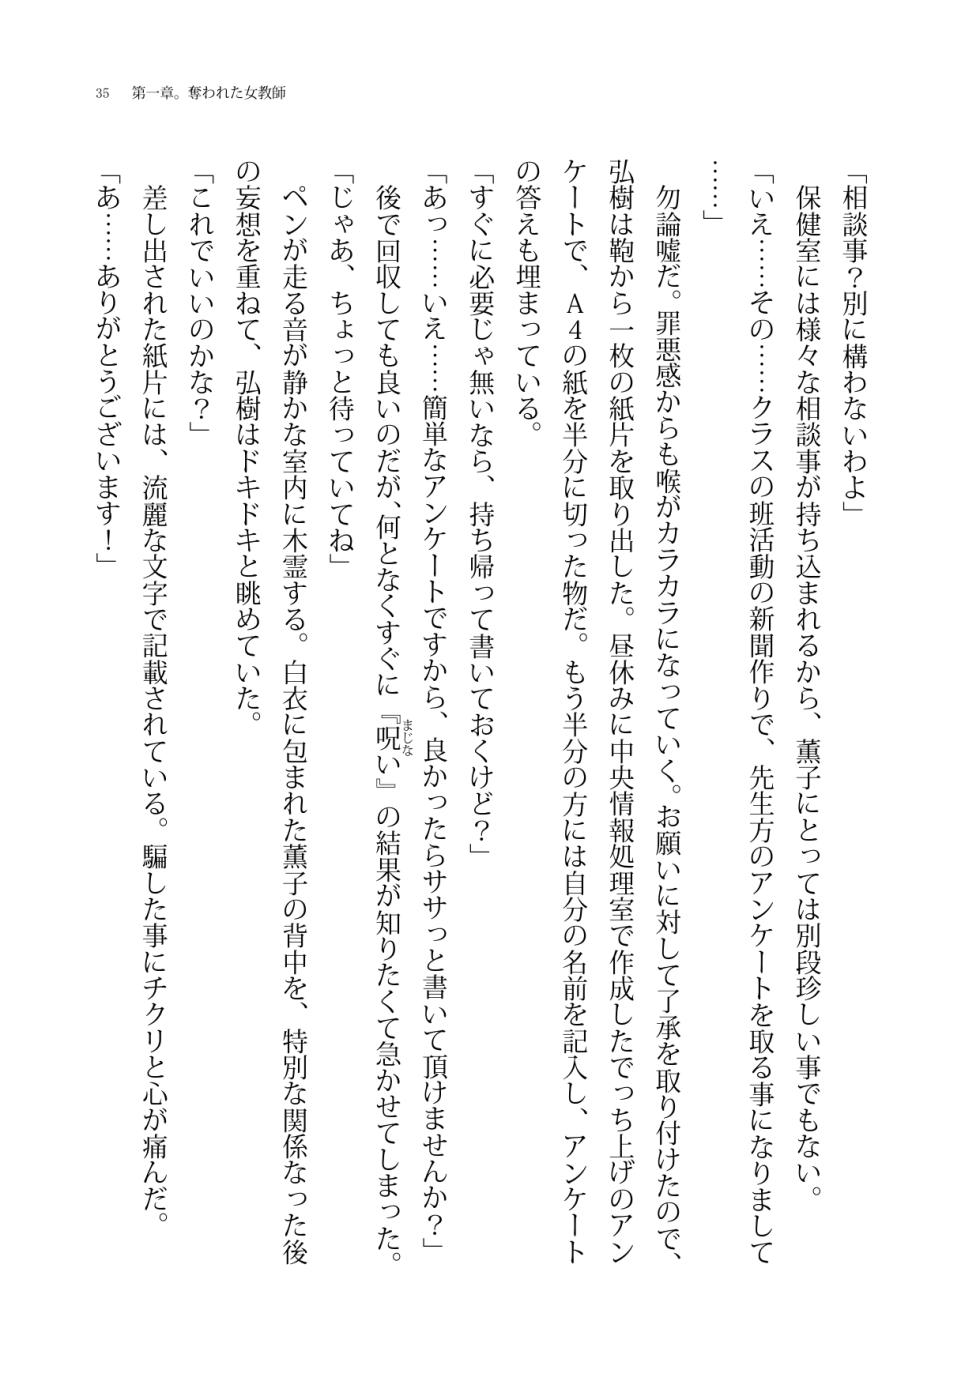 35　第一章。奪われた女教師
「相談事？別に構わないわよ」
保健室には様々な相談事が持ち込まれるから、薫子にとっては別段珍しい事でもない。
「いえ……その……クラスの班活動の新聞作りで、先生方のアンケートを取る事になりまして
……」
勿論嘘だ。罪悪感からも喉がカラカラになっていく。お願いに対して了承を取り付けたので、
弘樹は鞄から一枚の紙片を取り出した。昼休みに中央情報処理室で作成したでっち上げのアン
ケートで、Ａ４の紙を半分に切った物だ。もう半分の方には自分の名前を記入し、アンケート
の答えも埋まっている。
「すぐに必要じゃ無いなら、持ち帰って書いておくけど？」
「あっ……いえ……簡単なアンケートですから、良かったらササっと書いて頂けませんか？」
後で回収しても良いのだが、何となくすぐに『呪い』の結果が知りたくて急かせてしまった。
まじな
「じゃあ、ちょっと待っていてね」
ペンが走る音が静かな室内に木霊する。白衣に包まれた薫子の背中を、特別な関係なった後
の妄想を重ねて、弘樹はドキドキと眺めていた。
「これでいいのかな？」
差し出された紙片には、流麗な文字で記載されている。騙した事にチクリと心が痛んだ。
「あ……ありがとうございます！」